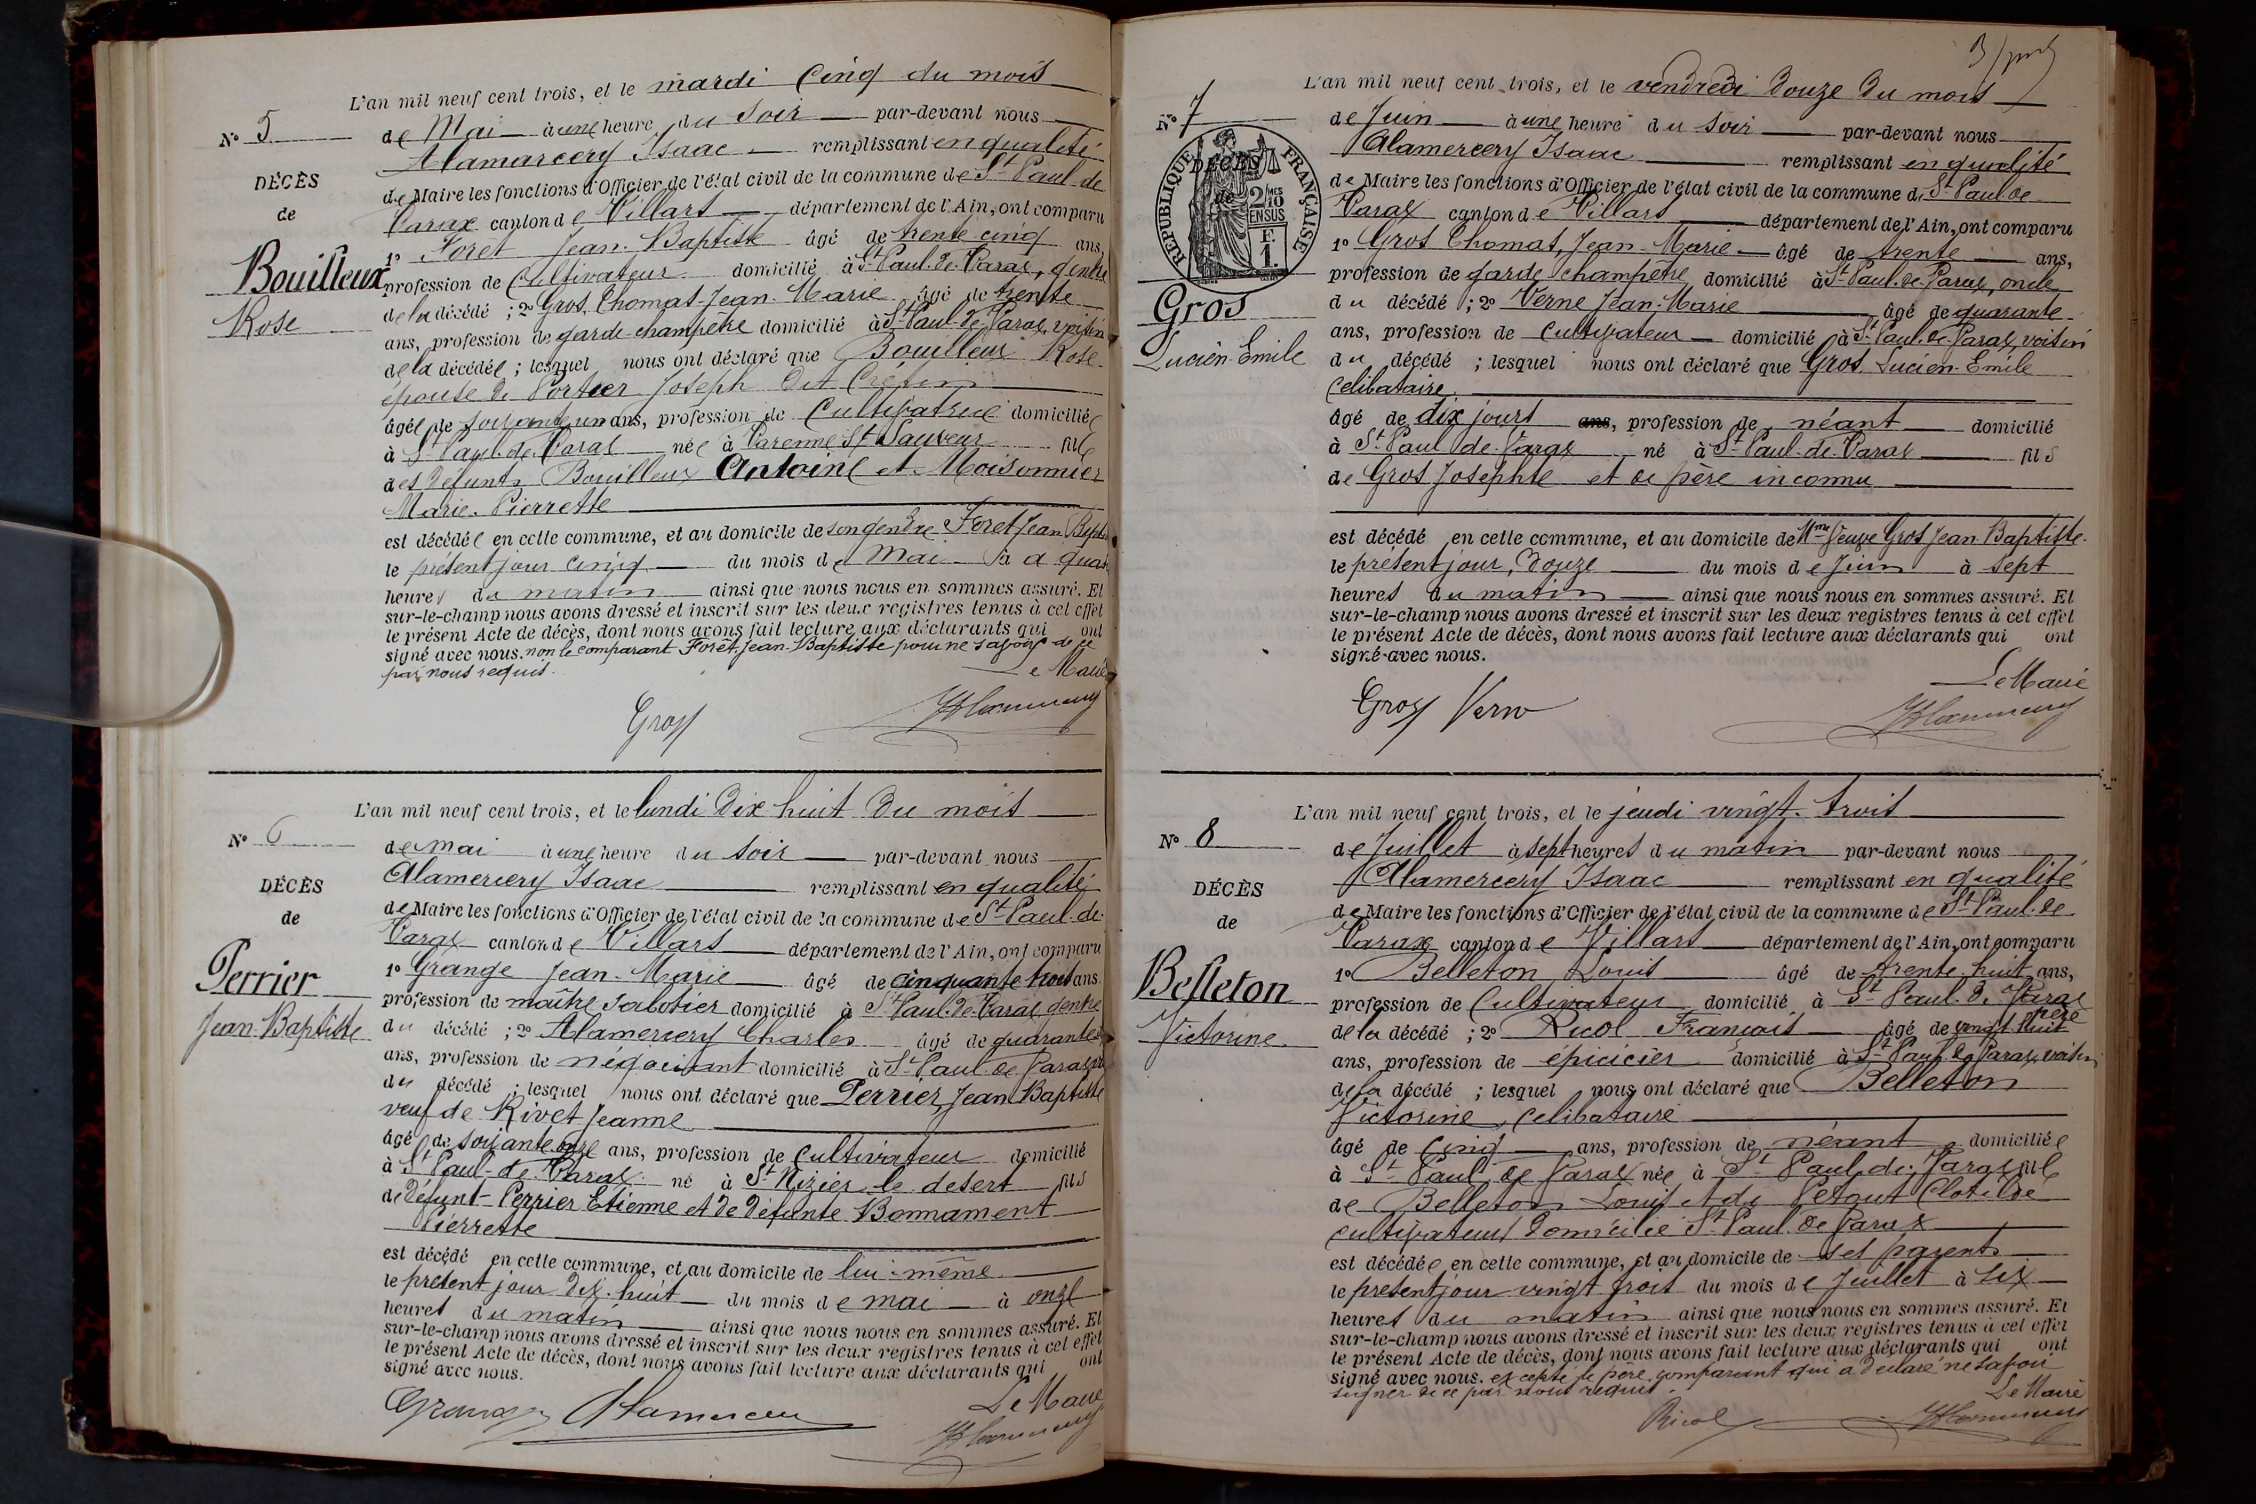 L'an mil neuf cent trois, et le mardi cinq du mois
N° 5
de Mai à une heure du soir par-devant nous
Alamercery Isaac remplissant en qualité
DÉCÈS
de Maire les fonctions d'Officier de l'état civil de la commune de St Paul de
de
Varax canton de Villars département de l'Ain, ont comparu
1° Foret Jean-Baptiste âgé de trente cinq ans,
Bouilleux
profession de Cultivateur domicilié à St Paul de Varax, gendre
Rose
de la décédé ; 2° Gros Thomas Jean-Marie âgé de trente
ans, profession de garde-champêtre domicilié à St Paul de Varax, voisin
de la décédée ; lesquel nous ont déclaré que Bouilleux Rose
épouse de Portier Joseph dit Crétin
âgée de soixante un ans, profession de Cultivatrice domiciliée
à St Paul de Varax née à Varenne St Sauveur fille
des défunts Bouilleux Antoine et Moisonnier
Marie-Pierrette
est décédée en cette commune, et au domicile de son gendre Foret Jean Bapt
le présent jour cinq du mois de Mai à
heures du matin ainsi que nous nous en sommes assuré. Et
sur-le-champ nous avons dressé et inscrit sur les deux registres tenus à cet effet
le présent Acte de décès, dont nous avons fait lecture aux déclarants qui ont
signé avec nous. non le comparant Foret Jean-Baptiste pour ne savoir de ce
par nous requis.
Le Maire
Gros
L'an mil neuf cent trois, et le lundi dix huit du mois
N° 6
de mai à une heure du soir par-devant nous
Alamercery Isaac remplissant en qualité
DÉCÈS
de Maire les fonctions d'Officier de l'état civil de la commune de St Paul de
de
Varax canton de Villars département de l'Ain, ont comparu
1° Grange Jean-Marie âgé de cinquante trois ans
Perrier
profession de maître sabotier domicilié à St Paul de Varax gendre
Jean-Baptiste
du décédé ; 2° Alamercery Charles âgé de quarante
ans, profession de négociant domicilié à St Paul de Varax
du décédé ; lesquel nous ont déclaré que Perrier, Jean Baptiste
veuf de Rivet Jeanne
âgé de soixante onze ans, profession de Cultivateur domicilié
à St Paul de Varax né à St Nizier le désert fils
de défunt Perrier Etienne et de défunte Bonnament
Pierrette
est décédé en cette commune, et au domicile de lui-même
le présent jour dix-huit du mois de mai à onze
heures du matin ainsi que nous nous en sommes assuré. Et
sur-le-champ nous avons dressé et inscrit sur les deux registres tenus à cet effet
le présent Acte de décès, dont nous avons fait lecture aux déclarants qui ont
signé avec nous.
Le Maire
Grange
L'an mil neuf cent trois, et le vendredi douze du mois
N° 7
de Juin à une heure du soir par-devant nous
Alamercery Isaac remplissant en qualité
DÉCÈS
de
RÉPUBLIQUE FRANÇAISE
2/10
EN SUS
F.
1.
de Maire les fonctions d'Officier de l'état civil de la commune de St Paul de
Varax canton de Villars département de l'Ain, ont comparu
1° Gros Thomas, Jean-Marie âgé de trente ans,
profession de garde champêtre domicilié à St Paul de Varax, oncle
Gros
du décédé ; 2° Verne Jean-Marie âgé de quarante
Lucien-Emile
ans, profession de cultivateur domicilié à St Paul de Varax, voisin
du décédé ; lesquel nous ont déclaré que Gros Lucien-Emile
Celibataire
âgé de dix jours ans, profession de néant domicilié
à St Paul de Varax né à St Paul de Varax fils
de Gros Josephte et de père inconnu
est décédé en cette commune, et au domicile de Mme Veuve Gros Jean-Baptiste
le présent jour, douze du mois de Juin à sept
heures du matin ainsi que nous nous en sommes assuré. Et
sur-le-champ nous avons dressé et inscrit sur les deux registres tenus à cet effet
le présent Acte de décès, dont nous avons fait lecture aux déclarants qui ont
signé avec nous.
Le Maire
Gros Verne
L'an mil neuf cent trois, et le jeudi vingt-trois
N° 8
de Juillet à sept heures du matin par-devant nous
Alamercery Isaac remplissant en qualité
DÉCÈS
de Maire les fonctions d'Officier de l'état civil de la commune de St Paul de
de
Varax canton de Villars département de l'Ain, ont comparu
1° Belleton Louis âgé de trente huit ans,
Belleton
profession de Cultivateur domicilié à St Paul de Varax
père
Victorine
de la décédé ; 2° Ricol François âgé de vingt huit
ans, profession de épicicier domicilié à St Paul de Varax, voisin
de la décédé ; lesquel nous ont déclaré que Belleton
Victorine, celibataire
âgé de cinq ans, profession de néant domiciliée
à St Paul de Varax née à St Paul de Varax fille
de Belleton Louis et de Petout Clotilde
cultivateurs domicilié St Paul de Varax
est décédée en cette commune, et au domicile de ses parents
le présent jour vingt trois du mois de Juillet à six
heures du matin ainsi que nous nous en sommes assuré. Et
sur-le-champ nous avons dressé et inscrit sur les deux registres tenus à cet effet
le présent Acte de décès, dont nous avons fait lecture aux déclarants qui ont
signé avec nous. excepté le père comparant qui a déclaré ne savoir
signer de ce par nous requis.
Le Maire
Ricol